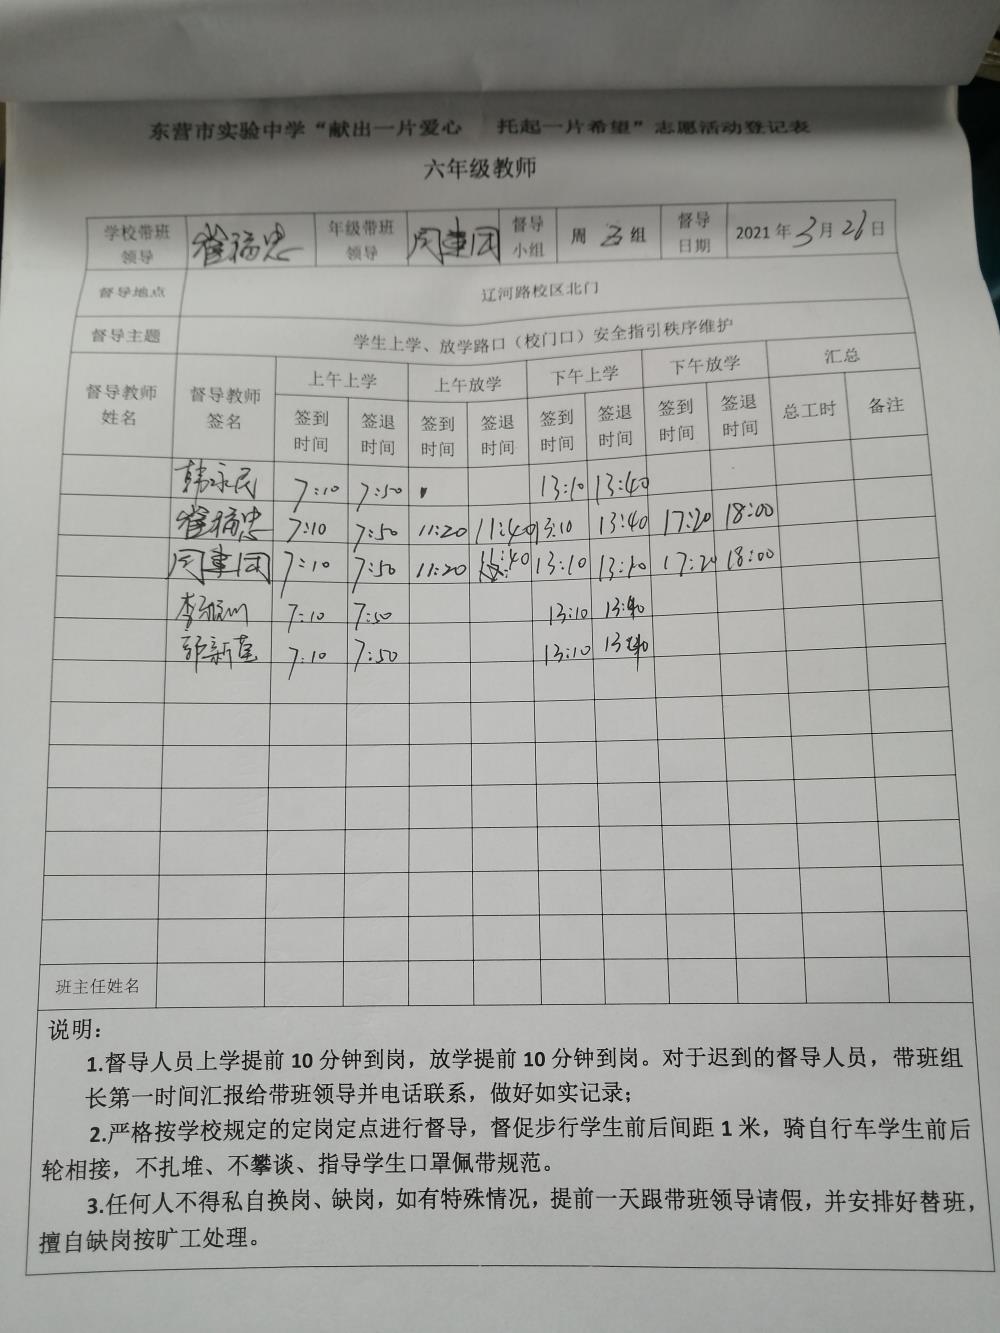 东营市实验中学“献出一片爱心 托起一片希望”志愿活动登记表
六年级教师
学校带班领导 崔福忠 年级带班领导 周建团 督导小组 周五组 督导日期 2021年3月26日
督导地点 辽河路校区北门
督导主题 学生上学、放学路口（校门口）安全指引秩序维护
督导教师姓名 督导教师签名 上午上学 上午放学 下午上学 下午放学 汇总
签到时间 签退时间 签到时间 签退时间 签到时间 签退时间 签到时间 签退时间 总工时 备注
韩永民 7:10 7:50 13:10 13:40
崔福忠 7:10 7:50 11:20 11:40 13:10 13:40 17:20 18:00
周建团 7:10 7:50 11:20 11:40 13:10 17:20 18:00
李 7:10 7:50 13:10 13:40
郭新 7:10 7:50 13:10 13:40
班主任姓名
说明：
1.督导人员上学提前10分钟到岗，放学提前10分钟到岗。对于迟到的督导人员，带班组
长第一时间汇报给带班领导并电话联系，做好如实记录；
2.严格按学校规定的定岗定点进行督导，督促步行学生前后间距1米，骑自行车学生前后
轮相接，不扎堆、不攀谈、指导学生口罩佩带规范。
3.任何人不得私自换岗、缺岗，如有特殊情况，提前一天跟带班领导请假，并安排好替班，
擅自缺岗按旷工处理。